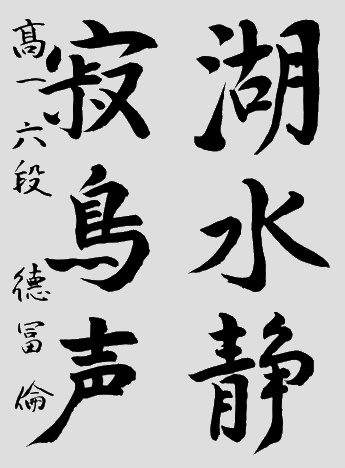 湖水静
寂鳥声
高一六段 德冨倫